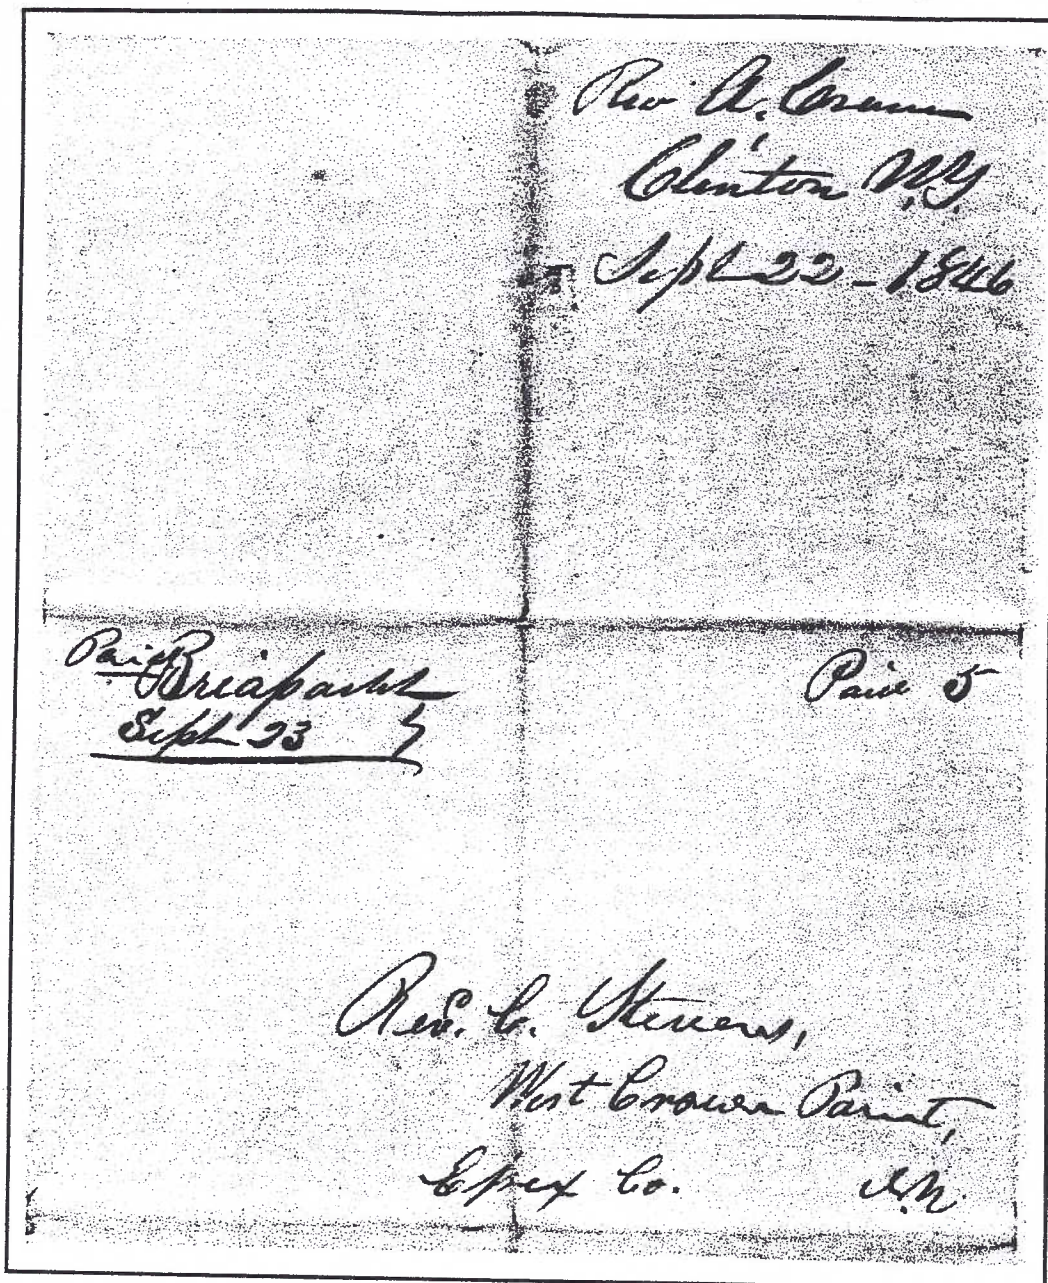 Rev A. Crane
Clinton N.Y.
Sept 22 - 1846
Paid
Sept 23
Paid 5
Rev. C. Stevens,
West Crown Point,
Essex Co.